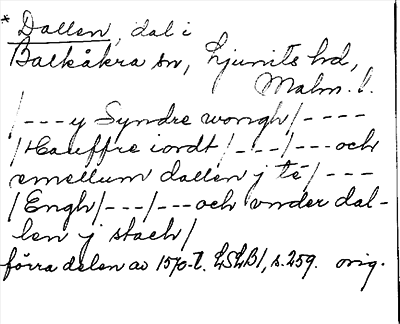 * Dallen, dal i
Balkåkra sn, Ljunits hd,
Malm. l.
/---y Syndre wongh/----
/Hauffre iordt/---/---och
emellum dallen j té/---
/Engh/---/---och vnder dal-
len j stach/
förra delen av 1570-t. LSLB1, s. 259. orig.